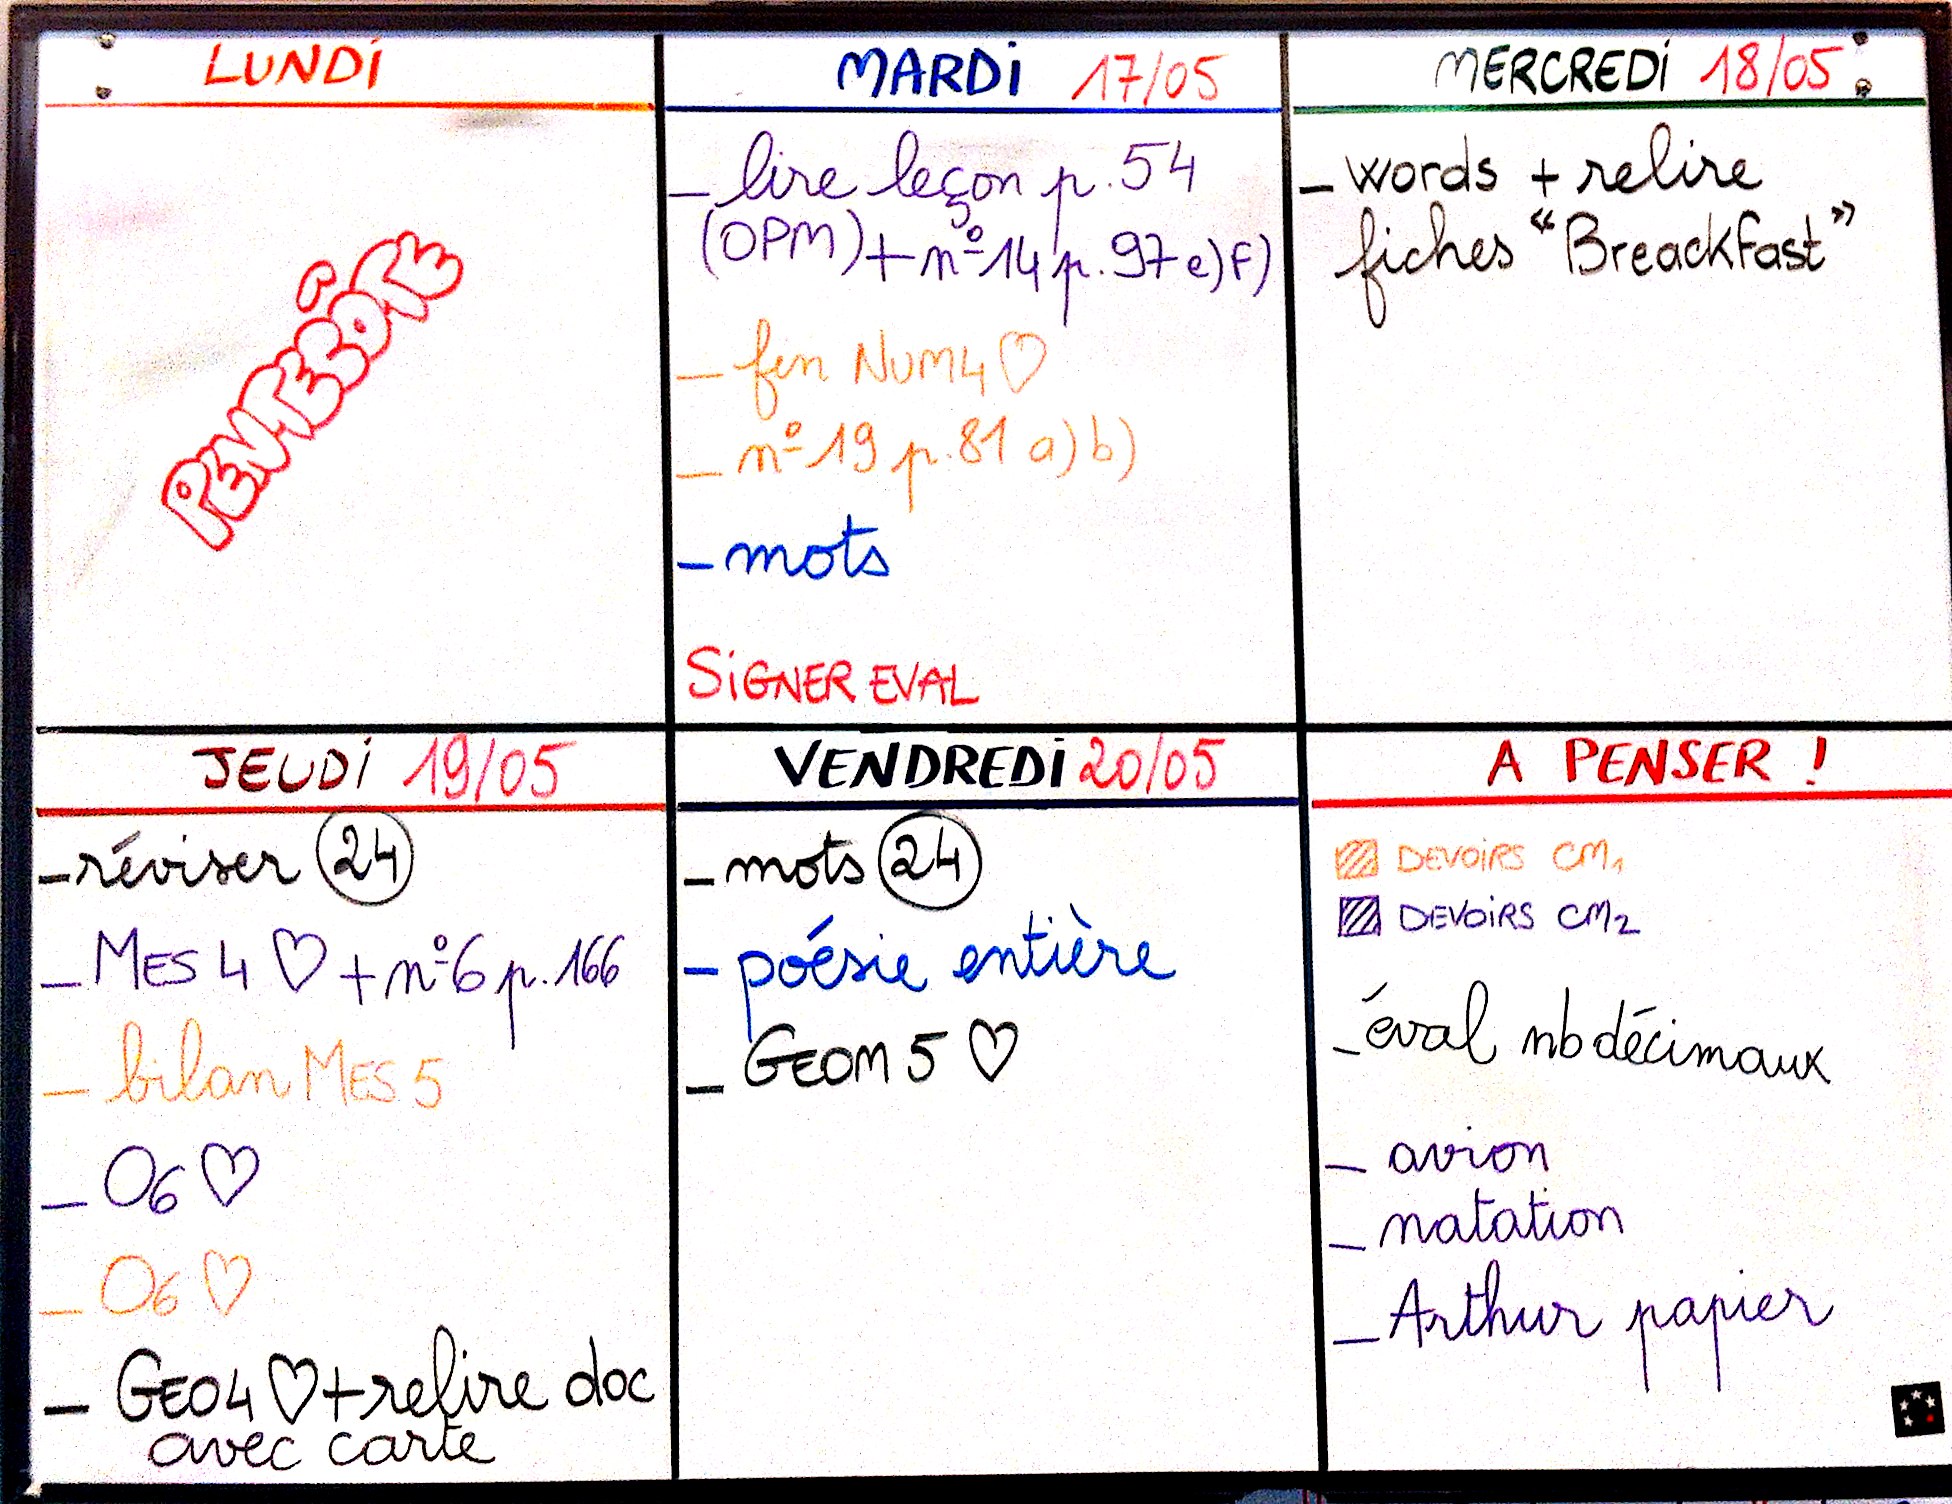 LUNDi
PENTECÔTE
MARDi 17/05
- lire leçon p.54
(OPM) + n°14 p.97 e) f)
- fin NUM4 ♡
- n°19 p.81 a) b)
- mots
SiGNER EVAL
MERCREDi 18/05
- words + relire
fiches "Breackfast"
JEUDi 19/05
- réviser 24
- MES 4 ♡ + n°6 p.166
- bilan MES 5
- O6 ♡
- O6 ♡
- GEO4 ♡ + relire doc
avec carte
VENDREDi 20/05
- mots 24
- poésie entière
- GEOM 5 ♡
A PENSER !
DEVOiRS CM1
DEVOiRS CM2
- éval nb décimaux
- avion
- natation
- Arthur papier